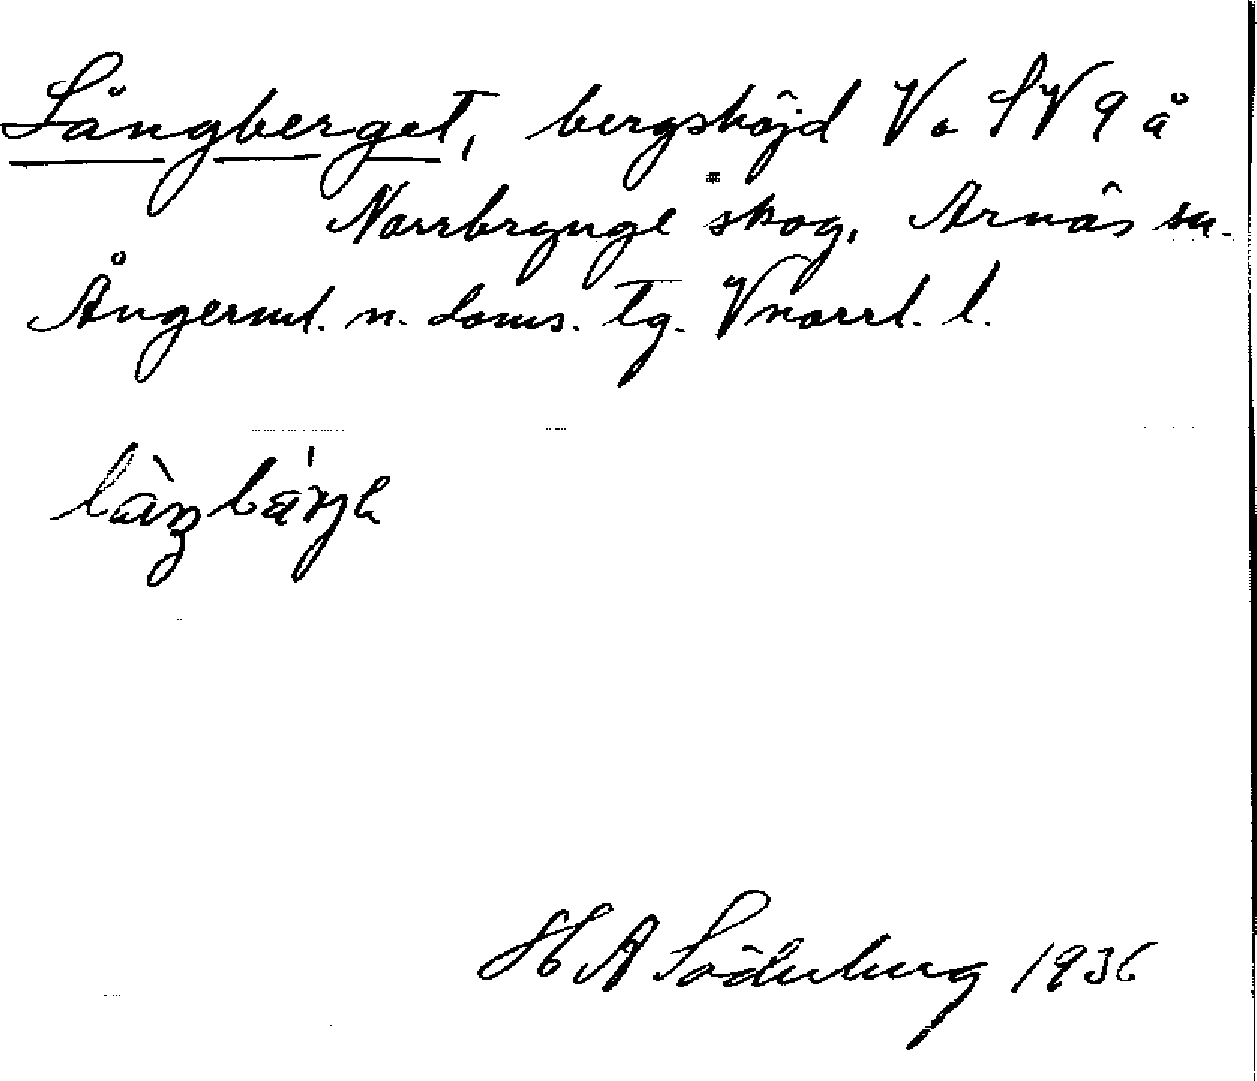 Långberget, bergshöjd V. SV 9 å
Norrbrynge skog, Arnäs sn.
Ångerml. n. doms. tg. Vnorrl. l.
H A Söderberg 1936